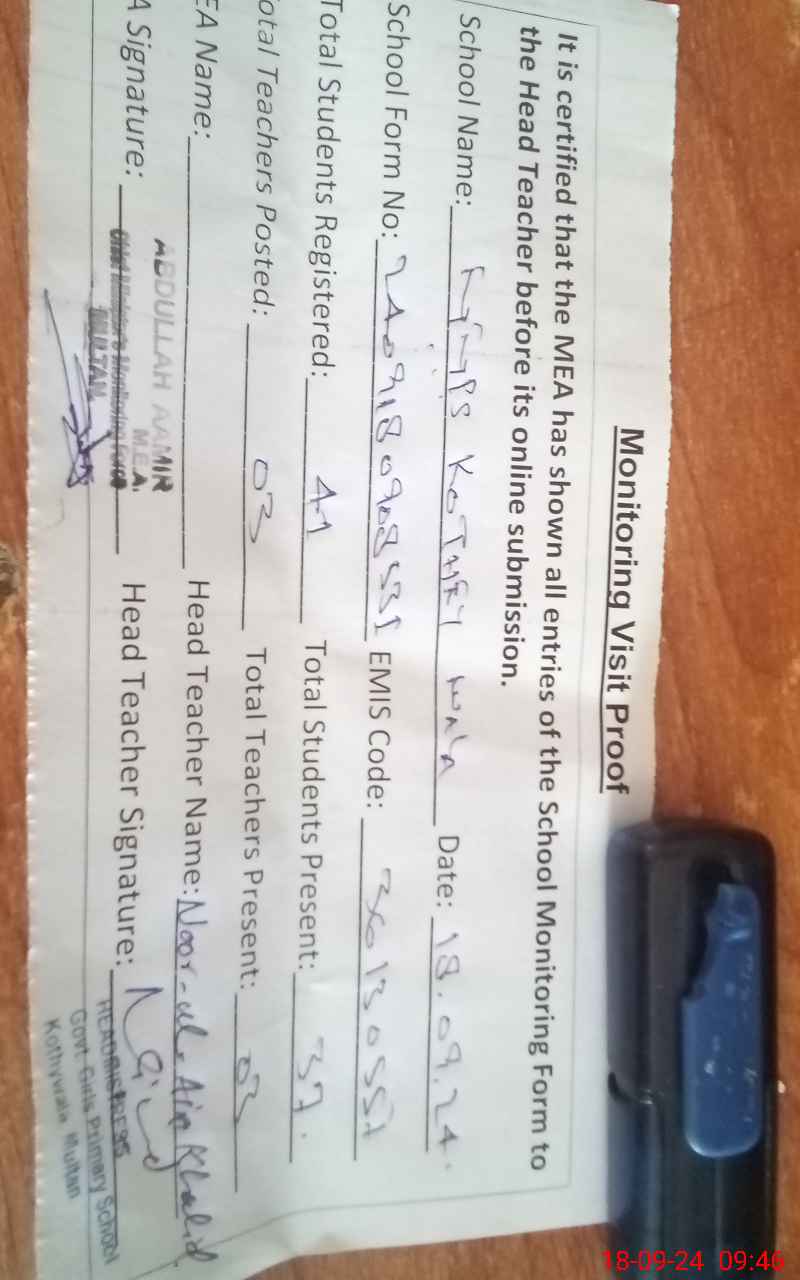 Monitoring Visit Proof
It is certified that the MEA has shown all entries of the School Monitoring Form to
the Head Teacher before its online submission.
School Name: KOTHEY WALA Date: 18.09.24.
School Form No: EMIS Code:
Total Students Registered: 41 Total Students Present: 37.
otal Teachers Posted: 03 Total Teachers Present: 03
EA Name: ABDULLAH AAMIR Head Teacher Name: Noor-ul-Ain Khalid
M.E.A.
A Signature: Head Teacher Signature:
Chief Minister's Monitoring Force
MULTAN
HEADMISTRESS
Govt. Girls Primary School
Kothywala Multan
18-09-24 09:46